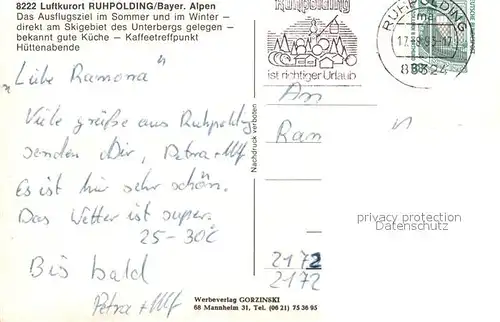 8222 Luftkurort RUHPOLDING/Bayer. Alpen
Das Ausflugsziel im Sommer und im Winter –
direkt am Skigebiet des Unterbergs gelegen –
bekannt gute Küche – Kaffeetreffpunkt
Hüttenabende
"Liebe Ramona"
Viele grüße aus Ruhpolding
senden Dir, Petra + Ulf
Es ist hir sehr schön.
Das Wetter ist super.
25-30°
Bis bald
Petra + Ulf
Nachdruck verboten
Ruhpolding
ist richtiger Urlaub
RUHPOLDING
83324
An
Ran
privacy protection
Verwendung
2172
2172
Werbeverlag GORZINSKI
68 Mannheim 31, Tel. (06 21) 75 36 95